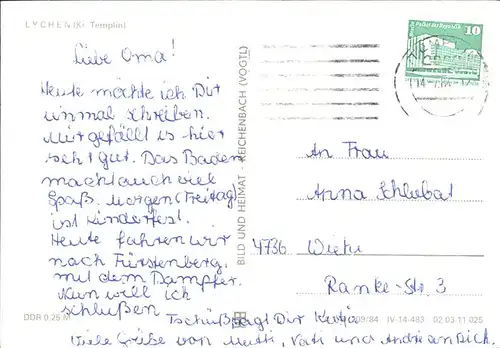 LYCHEN (Kr. Templin)
Liebe Oma!
Heute möchte ich Dir
einmal schreiben.
Mir gefällt es hier
sehr gut. Das Baden
macht auch viel
Spaß. Morgen (Freitag)
ist Kinderfest.
Heute fahren wir
nach Fürstenberg,
mit dem Dampfer.
Nun will ich
schlußen
Tschüß sagt Dir Katja
Viele Grüße von Mutti, Vati und
BILD UND HEIMAT · REICHENBACH (VOGTL)
10
An Frau
Anna
4736 Wiehe
Ranke-Str. 3
DDR 0,25 M
IV-14-483 02 03 11 025